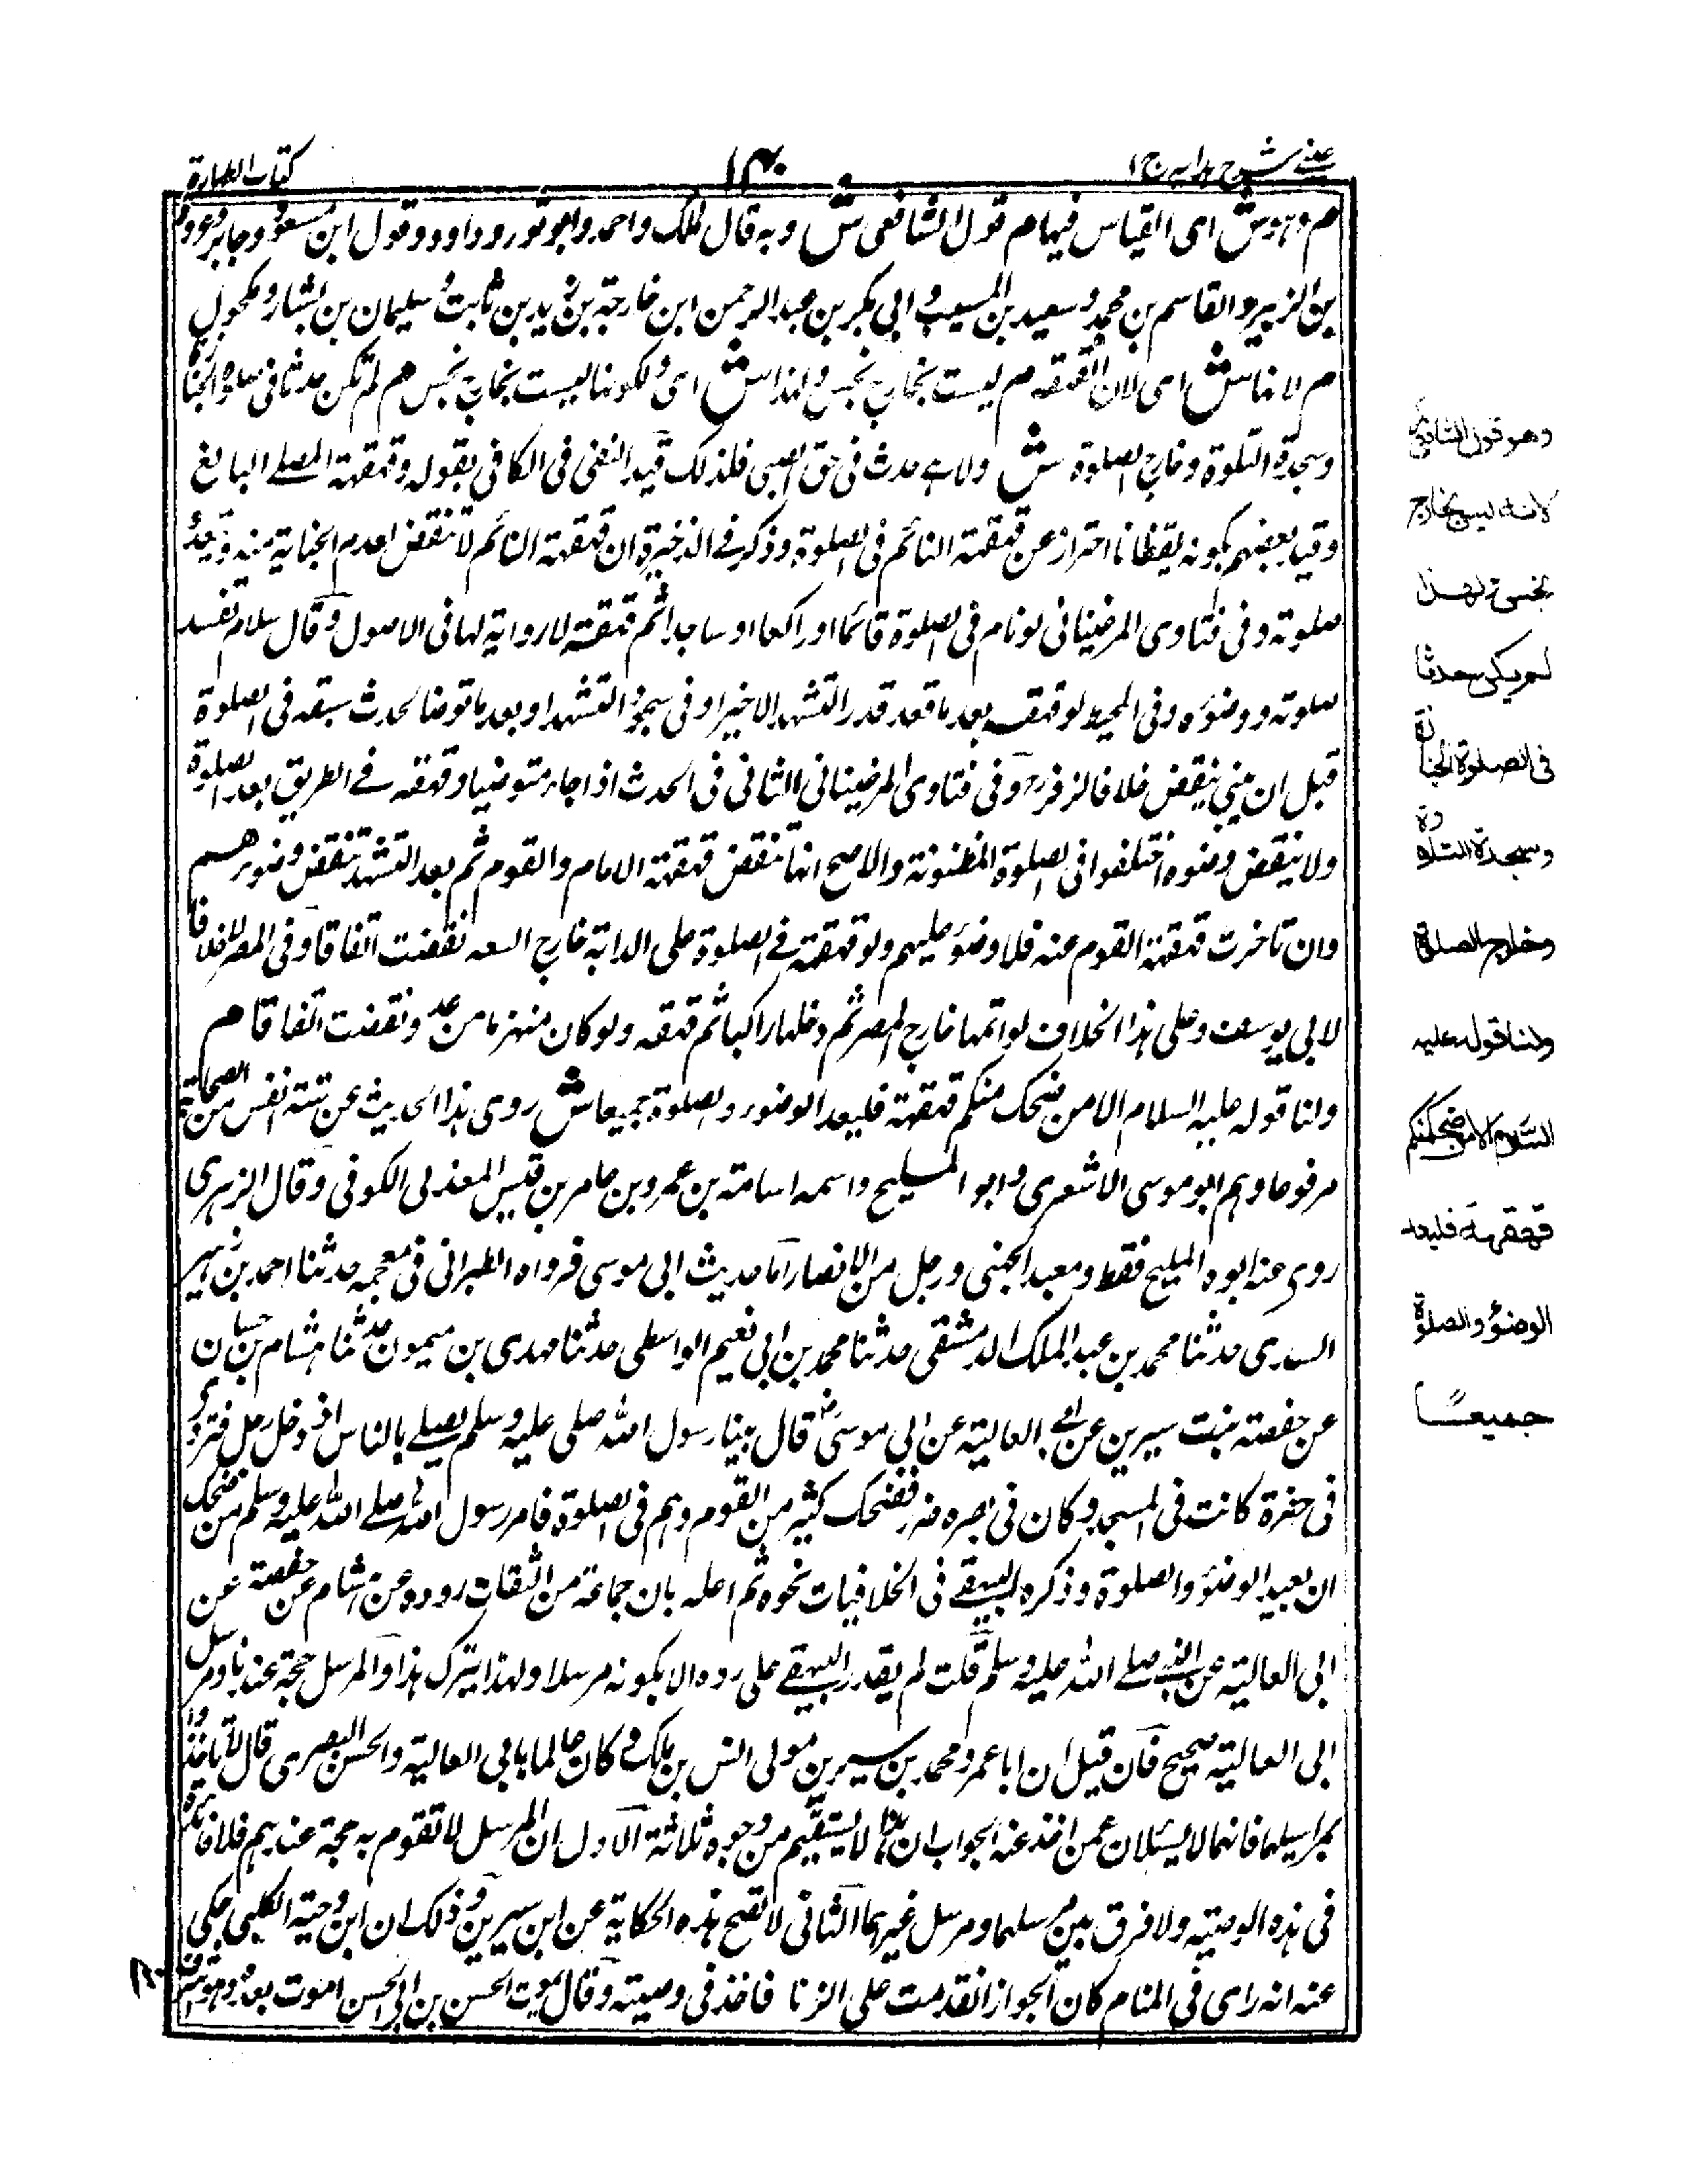 عينى شرح هدايه ج ا
١٤٠
كتاب الطهارة
م وهو ش اى القياس فيها م قول الشافعى ش وبه قال مالك واحمد وابو ثور وداود وقول ابن مسعود وجابر وعروة
بن الزبير والقاسم بن محمد وسعيد بن المسيب وابى بكر بن عبد الرحمن ابن خارجة بن زيد بن ثابت وسليمان بن يشار ومكحول
م لانها ش اى لان القهقهة م ليست بخارج نجس ولهذا ش اى ولكونها ليست بخارج نجس م لم تكن حدثا فى صلوة الجنازة
وسجدة التلاوة وخارج الصلوة ش ولاهى حدث فى حق الصبى فلذلك قيد النفى فى الكافى بقوله وقهقهة المصلے البالغ
وقيد بعضهم بكونه يقظانا احتراز عن قهقهة النائم فى الصلوة وذكر فے الذخيرة ان قهقهة النائم لا تنقض لعدم الجناية منه وتفسد
صلوته وفى فتاوى المرغينانى لو نام فى الصلوة قائما او راكعا او ساجدا ثم قهقهة لا رواية لها فى الاصول وقال سلام تفسد
صلوته ووضوءه وفى المحيط لو قهقه بعد ما قعد قدر التشهد الاخير او فى سجود التشهد او بعد ما توضا لحدث سبقه فى الصلوة
قبل ان يبنى ينقض خلافا لزفر وفى فتاوى المرغينانى الثانى فى الحدث اذا جاء متوضيا وقهقه فے الطريق بعد الصلوة
ولا ينقض وضوه اختلفوا فى الصلوة المظنونة والاصح انها تنقض قهقهة الامام والقوم ثم بعد التشهد تنقض وضوء هم
وان تاخرت قهقهة القوم عنه فلا وضوء عليهم ولو قهقهة فے الصلوة على الدابة خارج السعه نقضت اتفاقا وفى المصر لا خلافا
لابى يوسف وعلى هذا الخلاف لو اتمها خارج المصر ثم دخلها راكبا ثم قهقه ولو كان منهزما من عدو نقضت اتفاقا م
ولنا قوله عليه السلام الا من ضحك منكم قهقهة فليعد الوضوء والصلوة جميعا ش روى هذا الحديث عن ستة انفس من الصحابة
مرفوعا وهم ابو موسى الاشعرى وابو المليح واسمه اسامة بن عمرو بن عامر بن قيس المعذلى الكوفى وقال الزهرى
روى عنه ابوه المليح فقط ومعبد الجهنى ورجل من الانصار اما حديث ابى موسى فرواه الطبرانى فى معجمه حدثنا احمد بن زهير
السدرى حدثنا محمد بن عبد الملك الدمشقى حدثنا محمد بن ابى نعيم الواسطى حدثنا مهدى بن ميمون حدثنا هشام بن حسان
عن حفصة بنت سيرين عن ابى العالية عن ابى موسى قال بينا رسول الله صلى عليه وسلم يصلے بالناس اذ دخل رجل فتردى
فى حفرة كانت فى المسجد وكان فى بصره ضرر فضحك كثير من القوم وهم فى الصلوة فامر رسول الله صلے الله عليه وسلم من ضحك
ان يعيد الوضوء والصلوة وذكره البيهقے فى الخلافيات نحوه ثم اعله بان جماعة من الثقات رووه عن هشام عن حفصة عن
ابى العالية عن النبى صلے الله عليه وسلم قلت لم يقدر البيهقے على رده الا بكونه مرسلا ولهذا يترك هذا والمرسل حجة عندنا ومرسل
ابى العالية صحيح فان قيل ان ابا عمرو محمد بن سيرين مولى انس بن مالك وكان عالما بابى العالية والحسن البصرى قال لا تاخذوا
بمراسيلهما فانهما لا يسئلان عمن اخذ عنه الجواب ان هذا لا يستقيم من وجوه ثلاثة الاول ان المرسل لا تقوم به حجة عندهم فلا فائدة
فى هذه الوصية ولا فرق بين مرسلهما ومرسل غيرهما الثانى لا تصح هذه الحكاية عن ابن سيرين وذلك ان ابن دحية الكلبى حكى
عنه انه راى فى المنام كان الجوزا تقدمت على الثريا فاخذ فى وصيته وقال يموت الحسن بن ابى الحسن اموت بعده وهو اشرف
وهو قول الشافعى
لانه ليس بخارج
نجس ولهذا
لم يكن حدثا
فى الصلوة الجنازة
وسجدة التلاوة
وخارج الصلوة
ولنا قوله عليه
السلام الا من ضحك منكم
قهقهة فليعد
الوضوء والصلوة
جميعًا